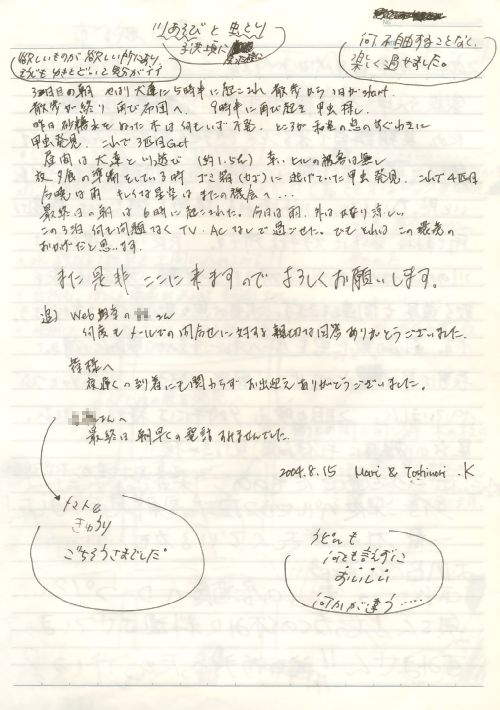 川あそびと虫とり
子供頃に
何不自由することなく、
楽しく過せました。
欲しいものが欲しい所にあり、
3日目の朝 やはり犬達に5時半に起こされ散歩から1日がstart.
散歩が終り 再び布団へ. 9時半に再び起き甲虫探し.
昨日砂糖水をぬった木は何もいず不発. ところが
甲虫発見. これで3匹Get
昼間は犬達と川遊び (約1.5h) 幸いヒルの被害は無し
夜 夕食の準備をしている時 ゴミ箱(カゴ)に逃げていた甲虫発見. これで4匹目
今晩は雨 キレイな星空はまたの機会へ…
最終日の朝は6時に起こされた. 今日は雨. 外はかなり涼しい
この3泊何も問題なくTV・ACなしで過ごせた. ひもとれはこの環境の
おかげだと思います.
また是非ここに来ますのでよろしくお願いします.
追) Web担当の さん
何度もメールでの問合せに対する親切な回答ありがとうございました.
皆様へ
夜遅くの到着にも関わらずお出迎えありがとうございました.
さんへ
最終日朝早くの電話すみませんでした.
2004.8.15 Mari & Toshinori .K
トマト&
きゅうり
ごちそうさまでした。
うどんも
何でも言えずに
おいしい
何かが違う……